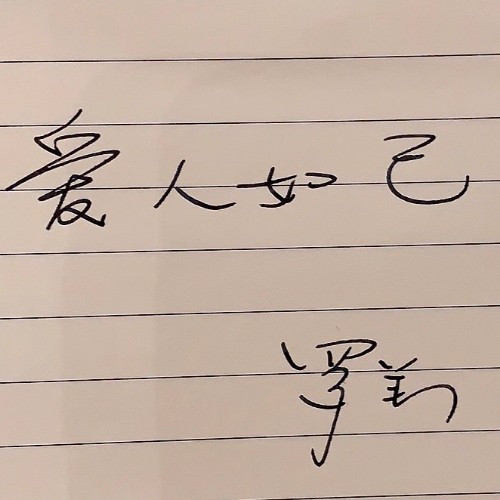 爱人如己
罗翔